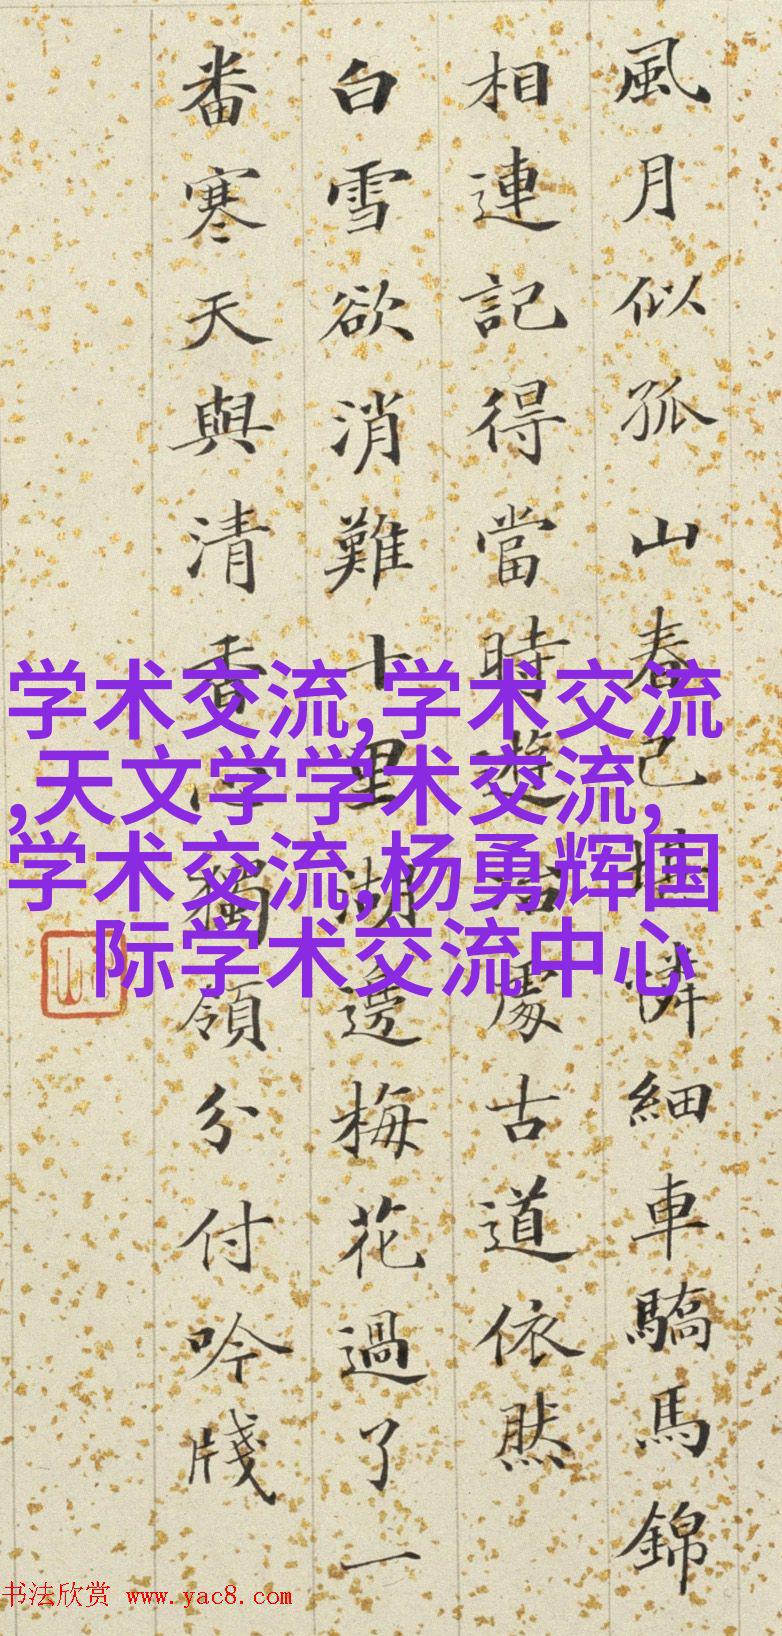 風月似孤山春已堪憐細車驕馬錦
相連記得當時遊處古道依然
白雪欲消難十里湖邊梅花過了一
番寒天與清香心獨領分付吟牋
学术交流,学术交流
,天文学学术交流,
学术交流,杨勇辉国
际学术交流中心
书法欣赏 www.yac8.com